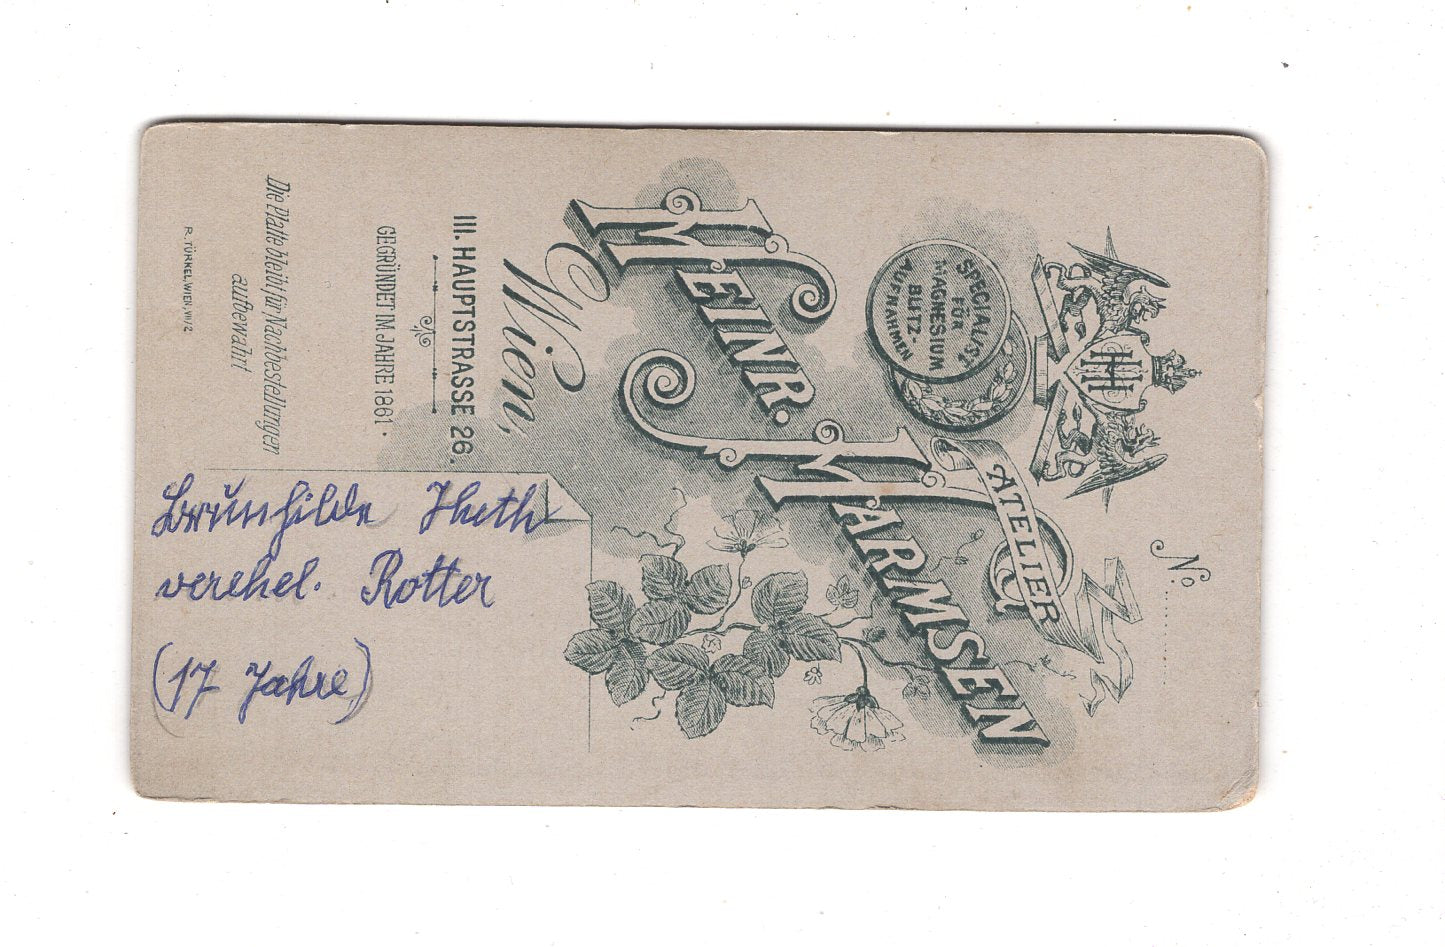 Nº
ATELIER
HEINR.
HARMSEN
SPECIALIST
FÜR
MAGNESIUM
BLITZ-
AUFNAHMEN
HH
Wien,
III. HAUPTSTRASSE 26.
GEGRÜNDET IM JAHRE 1861.
Die Platte bleibt für Nachbestellungen
aufbewahrt
R. TÜRKEL, WIEN, VII/2
Brunhilde
verehel. Rotter
(17 Jahre)